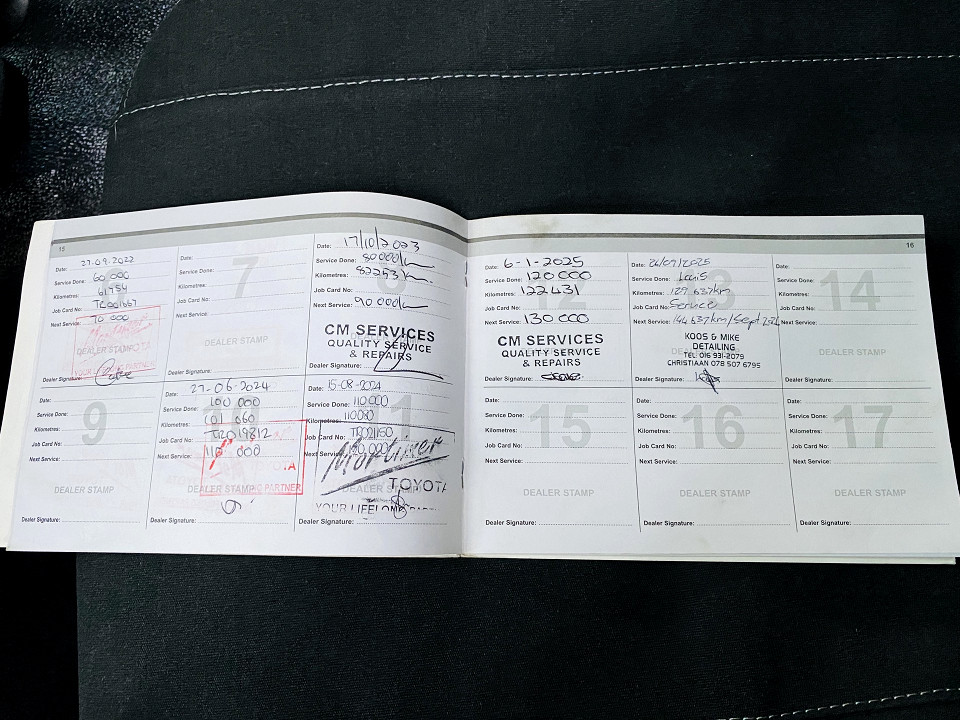 15
Date: 27.09.2022
Service Done: 60 000
Kilometres: 61954
Job Card No:
Next Service: 70 000
DEALER STAMP
Dealer Signature:
Date:
7
Service Done:
Kilometres:
Job Card No:
Next Service:
DEALER STAMP
Dealer Signature:
Date: 17/10/2023
Service Done: 80000k
Kilometres: 82253k
Job Card No:
Next Service: 90000k
CM SERVICES
QUALITY SERVICE
& REPAIRS
Dealer Signature:
Date:
9
Service Done:
Kilometres:
Job Card No:
Next Service:
DEALER STAMP
Dealer Signature:
Date: 27-06-2024
Service Done: 100 000
Kilometres: 101 060
Job Card No: TR019812
Next Service: 110 000
DEALER STAMP
PARTNER
Date: 15-08-2024
Service Done: 110000
Kilometres: 110080
Job Card No:
Next Service:
TOYOTA
YOUR LIFELONG
Dealer Signature:
16
Date: 6-1-2025
Service Done: 120000
Kilometres: 122431
Job Card No:
Next Service: 130000
CM SERVICES
QUALITY SERVICE
& REPAIRS
Dealer Signature:
Date: 26/09/2025
Service Done:
Kilometres: 129 637km
Job Card No: Service
Next Service: 144 637km/Sept
KOOS & MIKE
DETAILING
TEL 016 931-2079
CHRISTIAAN 078 507 6795
Dealer Signature:
Date:
14
Service Done:
Kilometres:
Job Card No:
Next Service:
DEALER STAMP
Dealer Signature:
Date:
15
Service Done:
Kilometres:
Job Card No:
Next Service:
DEALER STAMP
Dealer Signature:
Date:
16
Service Done:
Kilometres:
Job Card No:
Next Service:
DEALER STAMP
Dealer Signature:
Date:
17
Service Done:
Kilometres:
Job Card No:
Next Service:
DEALER STAMP
Dealer Signature: